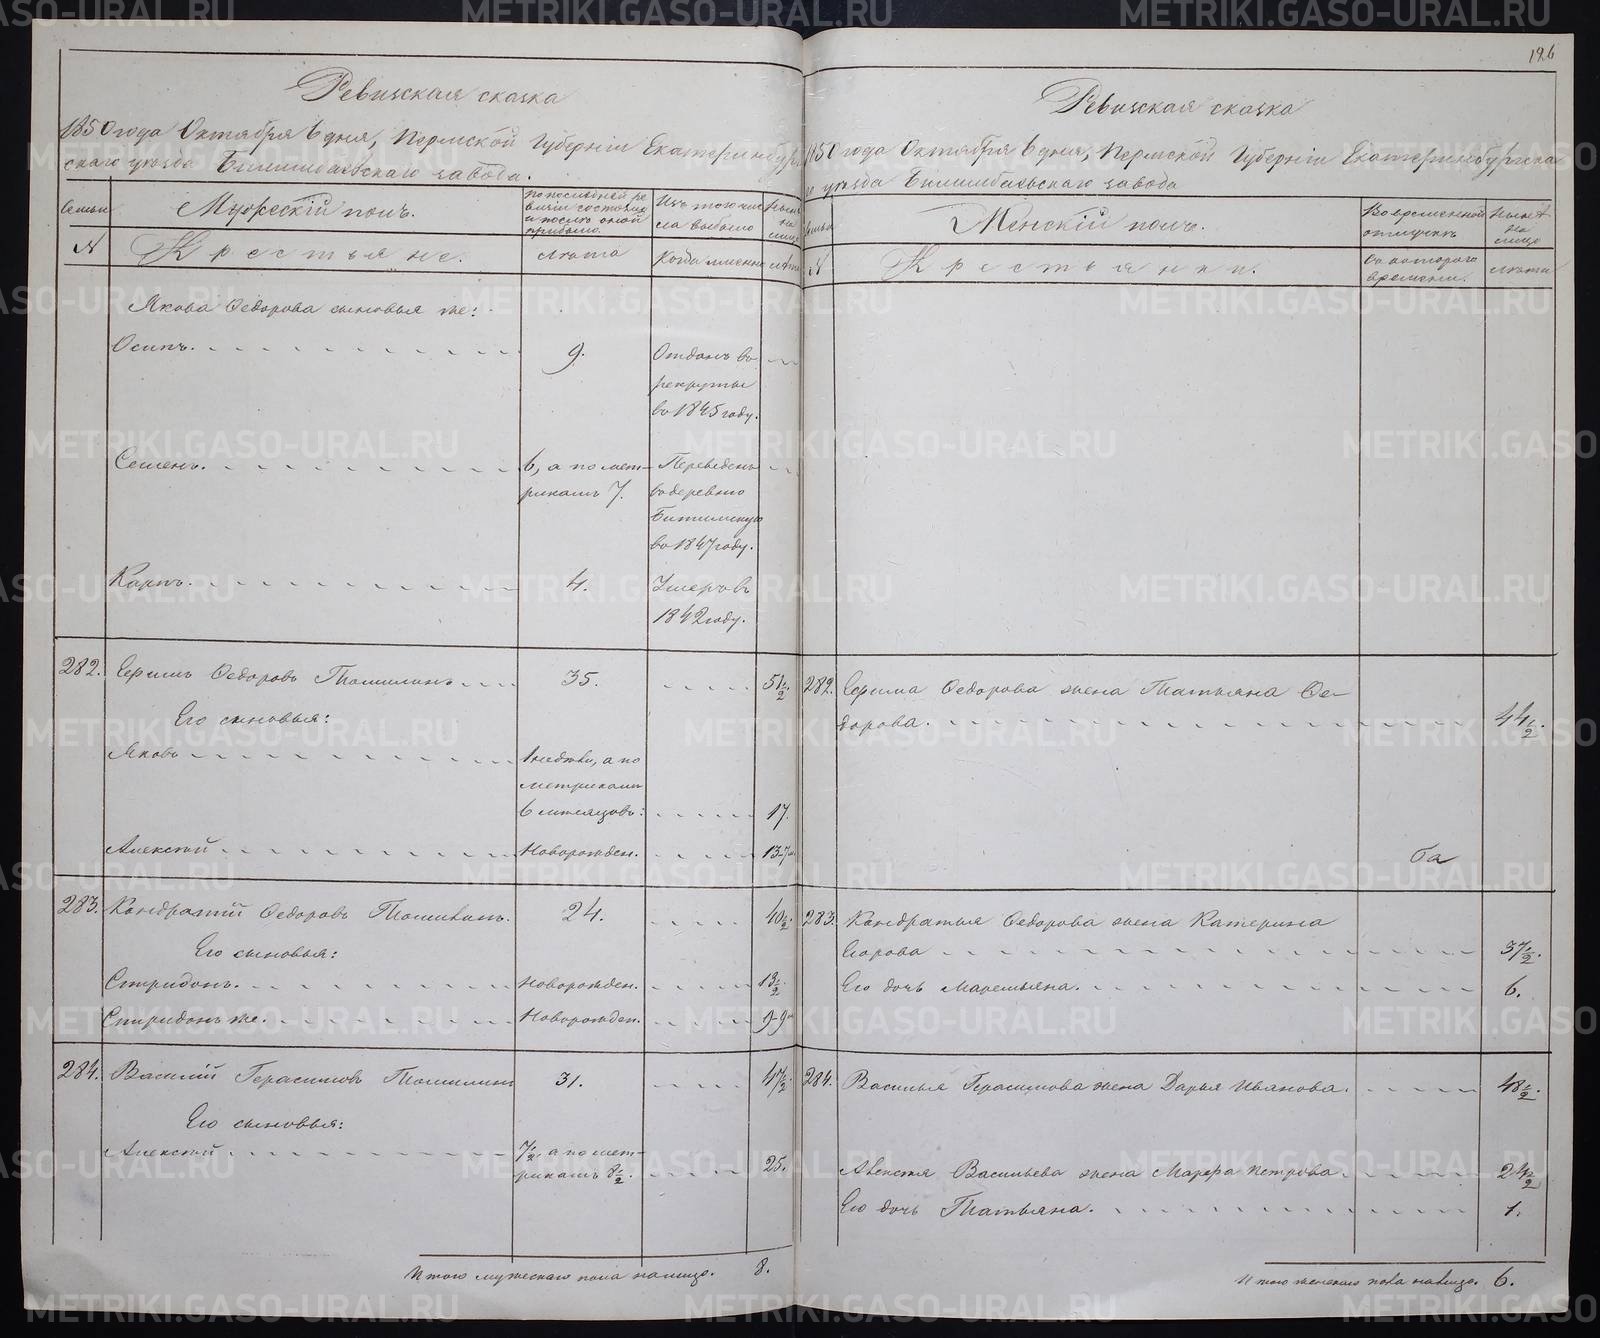 126
Ревизская сказка
1850 года Октября 6 дня, Пермской Губернiи Екатеринбург-
скаго уѣзда Билимбаевскаго завода.
Семьи
Мужескiй полъ.
По послѣдней ре-
визiи состояло
и послѣ оной
прибыло.
Изъ того чис-
ла выбыло
Нынѣ
на
лицо
№
Крестьяне.
Лѣта
Когда именно
лѣта
Якова Ѳедорова сыновья же:
Осипъ.
9.
Отданъ въ
рекруты
въ 1845 году.
Семенъ.
6, а по мет-
рикамъ 7.
Переведенъ
въ деревню
Битимскую
въ 1847 году.
Карпъ.
4.
Умеръ въ
1842 году.
282.
Ефимъ Ѳедоровъ Томилинъ
35.
51 1/2.
Его сыновья:
Яковъ
1 недѣли, а по
метрикамъ
6 мѣсяцовъ:
17.
Алексѣй
Новорожден.
13-7м
283.
Кондратiй Ѳедоровъ Томилинъ.
24.
40 1/2.
Его сыновья:
Спиридонъ.
Новорожден.
13 1/2.
Спиридонъ же.
Новорожден.
9-9м
284.
Василiй Герасимовъ Томилинъ
31.
47 1/2.
Его сыновья:
Алексѣй
7 1/2, а по мет-
рикамъ 8 1/2.
25.
Итого мужескаго пола налицо.
8.
Ревизская сказка
1850 года Октября 6 дня, Пермской Губернiи Екатеринбургска-
го уѣзда Билимбаевскаго завода
Семьи
Женскiй полъ.
Во временной
отлучкѣ
Нынѣ
на
лицо
№
Крестьянки.
Съ котораго
времени.
лѣта
282.
Ефима Ѳедорова жена Татьяна Ѳе-
дорова.
44 1/2.
ба
283.
Кондратья Ѳедорова жена Катерина
Егорова
37 1/2.
Его дочь Маремьяна.
6.
284.
Василья Герасимова жена Дарья Иванова.
48 1/2.
Алексѣя Васильева жена Марфа Петрова.
24 1/2
Его дочь Татьяна.
1.
Итого женскаго пола налицо.
6.
METRIKI.GASO-URAL.RU